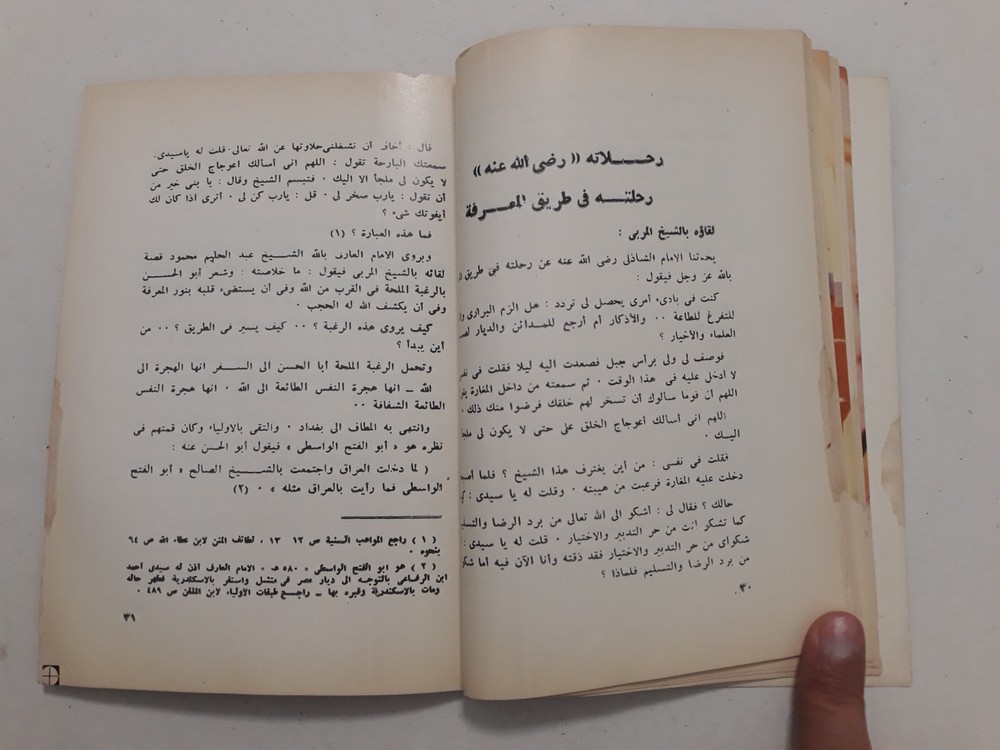 رحــلاته (( رضى الله عنه ))
رحلتــه فى طريق المعــرفة
لقاؤه بالشيخ المربى :
يحدثنا الامام الشاذلى رضى الله عنه عن رحلته فى طريق
بالله عز وجل فيقول :
كنت فى بادىء أمرى يحصل لى تردد : هل الزم البرارى
للتفرغ للطاعة ٠٠ والأذكار أم أرجع للمــدائن والديار
العلماء والأخيار ؟
فوصف لى ولى برأس جبل فصعدت اليه ليلا فقلت فى
لا أدخل عليه فى هذا الوقت ٠ ثم سمعته من داخل المغارة
اللهم ان قوما سألوك أن تسخر لهم خلقك فرضوا منك ذلك ٠
اللهم انى أسألك أعوجاج الخلق على حتى لا يكون لى
اليــك ٠
فقلت فى نفسى : من أين يغترف هذا الشيخ ؟ فلما
دخلت عليه المغارة فرعبت من هيبته ٠ وقلت له يا سيدى :
حالك ؟ فقال لى : أشكو الى الله تعالى من برد الرضا والتسليم
كما تشكو انت من حر التدبير والاختيار ٠ قلت له يا سيدى :
شكواى من حر التدبير والاختيار فقد ذقته وأنا الآن فيه أما
من برد الرضا والتسليم فلماذا ؟
٣٠
قال : أخاف أن تشغلنى حلاوتها عن الله تعالى ٠ قلت له ياسيدى ٠
سمعتك البارحة تقول : اللهم انى أسالك أعوجاج الخلق حتى
لا يكون لى ملجأ الا اليك ٠ فتبسم الشيخ وقال : يا بنى خير من
أن تقول : يارب سخر لى ٠ قل : يارب كن لى ٠ أترى اذا كان لك
أيفوتك شىء ؟
فما هذه العبارة ؟ (١)
ويروى الامام العارف بالله الشــيخ عبد الحليم محمود قصة
لقائه بالشيخ المربى فيقول : ما خلاصته : وشعر أبو الحســن
بالرغبة الملحة فى القرب من الله وفى أن يستضىء قلبه بنور المعرفة
وفى أن يكشف الله له الحجب ٠
كيف يروى هذه الرغبة ؟ ٠٠ كيف يسير فى الطريق ؟ ٠٠ من
أين يبدأ ؟
وتحمل الرغبة الملحة أبا الحسن الى الســفر انها الهجرة الى
الله ــ انها هجرة النفس الطائعة الى الله ٠ انها هجرة النفس
الطائعة الشفافة ٠٠
وانتهى به المطاف الى بغداد ٠ والتقى بالاولياء وكان قمتهم فى
نظره هو « أبو الفتح الواسطى » فيقول أبو الحسن عنه :
( لما دخلت العراق واجتمعت بالشــيخ الصالح « أبو الفتح
الواسطى فما رأيت بالعراق مثله » ٠ (٢)
( ١ ) راجع المواهب السنية ص ١٢ ١٣ ٠ لطائف المنن لابن عطاء الله ص ٦٤
بنحوه ٠
( ٢ ) هو ابو الفتح الواسطى « ٥٨٠ هـ » الامام العارف اذن له سيدى احمد
ابن الرفاعى بالتوجه الى ديار مصر فى متشل واستقر بالاسكندرية فظهر حاله
ومات بالاسكندرية وقبره بها ــ راجع طبقات الاولياء لابن الملقن ص ٤٨٩ ٠
٣١